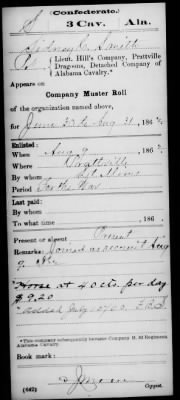 Confederate.
S 3 Cav. Ala.
Sidney C. Smith
Lieut. Hill's Company, Prattville
Dragoons, Detached Company of
Alabama Cavalry.*
Appears on
Company Muster Roll
of the organization named above,
for June 30 to Aug 31, 186
Enlisted:
When Aug 9, 186
Where Prattville
By whom
Period For the War
Last paid:
By whom
To what time , 186 .
Present or absent Present
Remarks: Joined as recruit Aug
9
Horse at 40 cts. per day
$9.20
*This company subsequently became Company H 3d Regiment
Alabama Cavalry.
Book mark:
(642) Copyist.